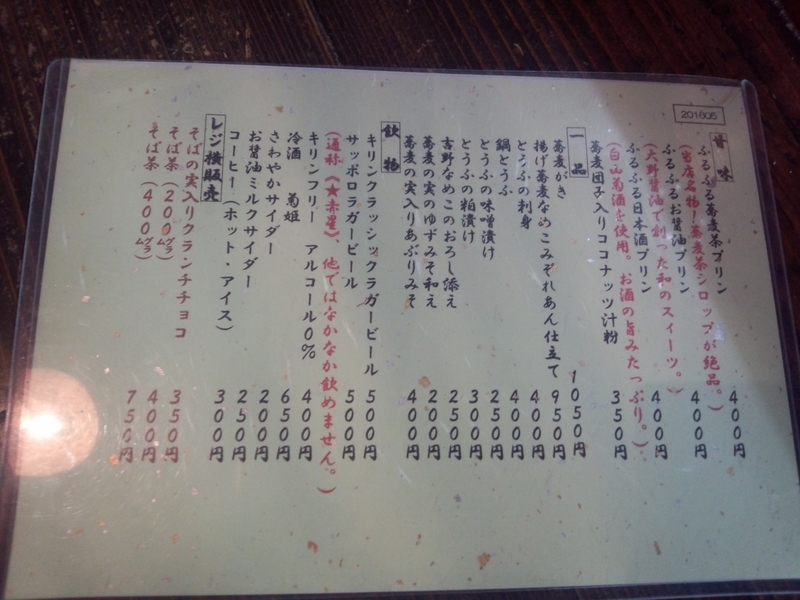 201605
甘味
ふるふる蕎麦茶プリン 400円
(当店名物!蕎麦茶シロップが絶品。)
ふるふるお醤油プリン 400円
(大野醤油で創った和のスイーツ。)
ふるふる日本酒プリン 400円
(白山菊酒を使用。お酒の旨みたっぷり。)
蕎麦団子入りココナッツ汁粉 350円
一品
蕎麦がき 1050円
揚げ蕎麦なめこみぞれあん仕立て 950円
とうふの刺身 400円
鍋とうふ 400円
とうふの味噌漬け 250円
とうふの粕漬け 300円
吉野なめこのおろし添え 250円
蕎麦の実のゆずみそ和え 200円
蕎麦の実入りあぶりみそ 400円
飲物
キリンクラッシックラガービール 500円
サッポロラガービール 500円
(通称《★赤星》、他ではなかなか飲めません。)
キリンフリー アルコール0% 400円
冷酒 菊姫 650円
さわやかサイダー 200円
お醤油ミルクサイダー 250円
コーヒー(ホット・アイス) 300円
レジ横販売
そばの実入りクランチチョコ 350円
そば茶(200㌘) 400円
そば茶(400㌘) 750円